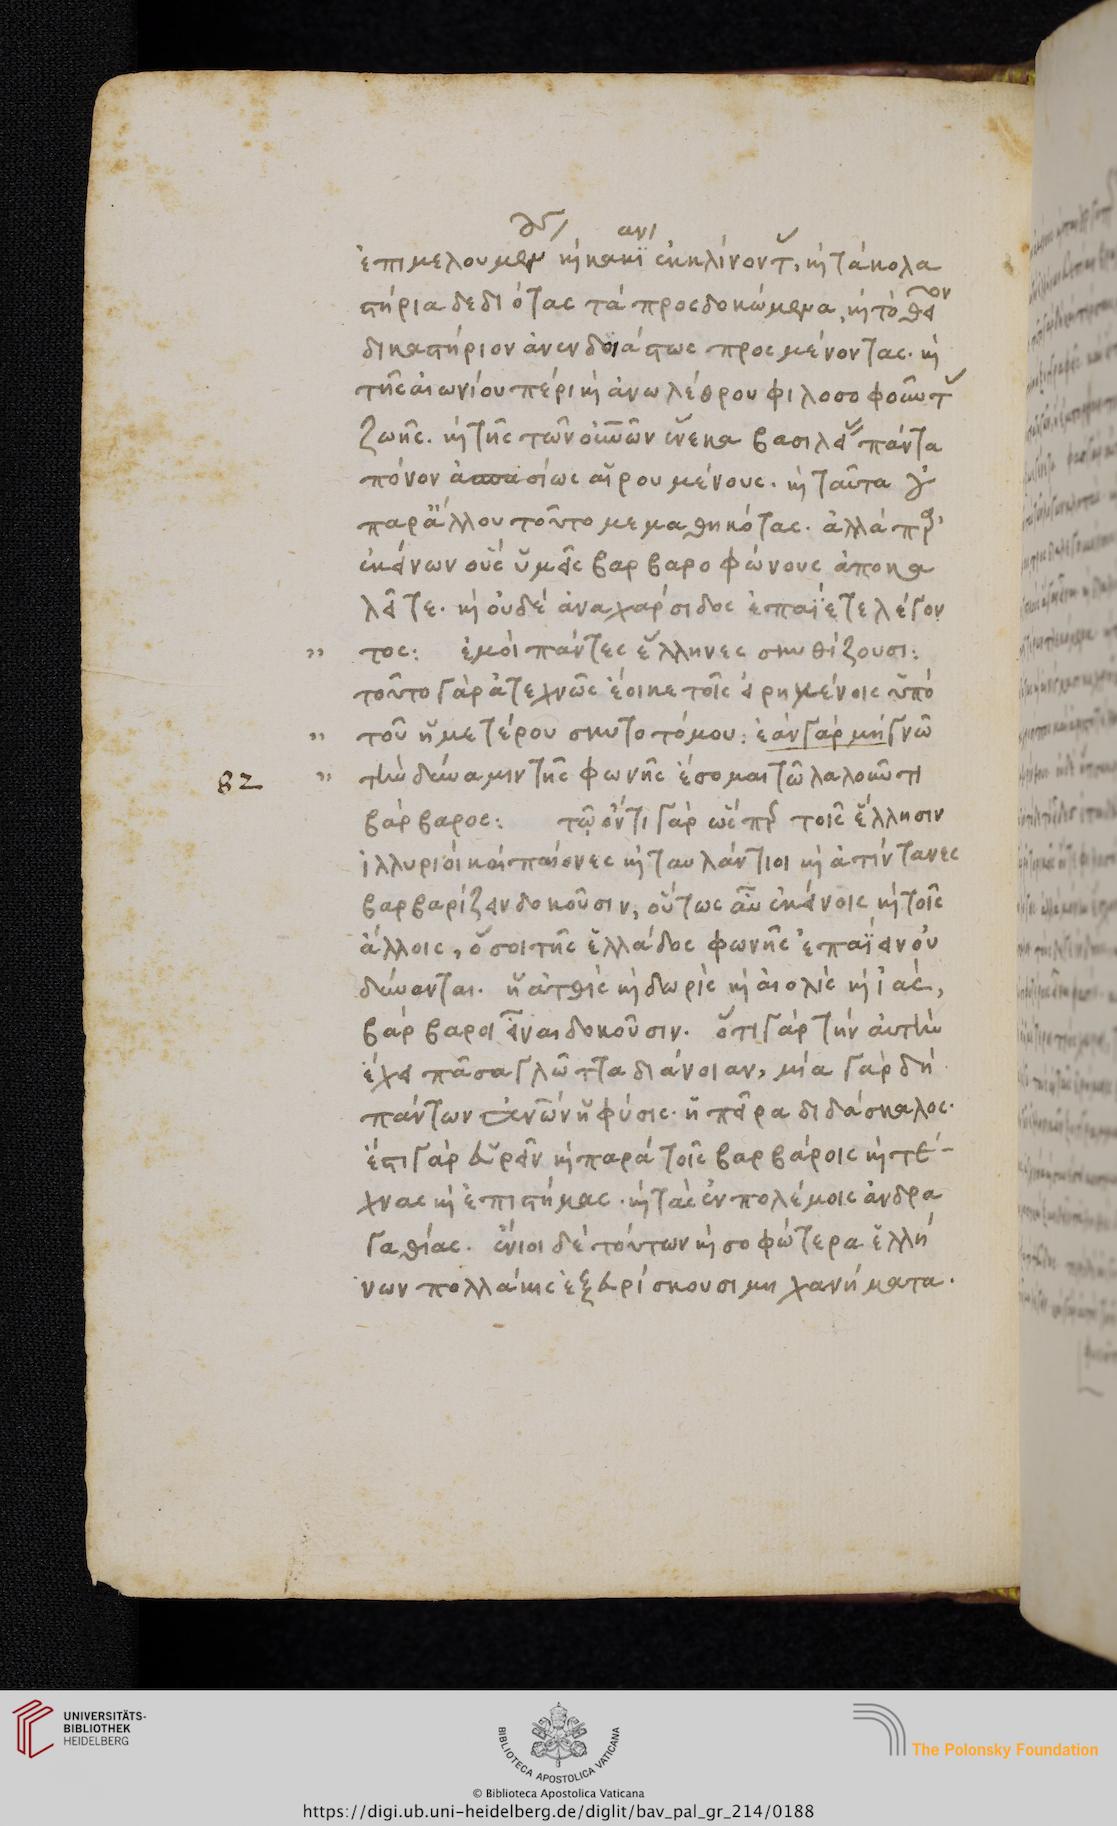 ἐπιμελουμεν κ κακι ἐκκλίνοντ, κ τὰ κολα
στήρια δεδιότας τὰ προσδοκώμενα, κ τὸ θει
δικαστήριον ἀνενδοιάστως προσμένοντας. κ
τῆς αἰωνίου πέρι κ ἀνωλέθρου φιλοσοφοῦντ
ζωῆς. κ τῆς τῶν ἕνεκα πάντα
πόνον ἀσπασίως αἱρουμένους. κ ταῦτα
παρ' ἄλλου τοῦτο μεμαθηκότας. ἀλλὰ
ἐκείνων οὓς ὑμεῖς βαρβαροφώνους ἀποκα
λεῖτε. κ οὐδὲ ἀναχάρσιδος ἐπαΐετε λέγον
τος: ἐμοὶ πάντες ἕλληνες σκυθίζουσι:
τοῦτο γὰρ ἀτεχνῶς ἔοικε τοῖς εἰρημένοις ὑπὸ
τοῦ ἡμετέρου σκυτοτόμου: ἐὰν γὰρ μὴ γνῶ
82 τὴν δύναμιν τῆς φωνῆς ἔσομαι τῶ λαλοῦντι
βάρβαρος: τῷ ὄντι γὰρ τοῖς ἕλλησιν
ἰλλυριοί καὶ παίονες κ ταυλάντιοι κ ἀτιντανες
βαρβαρίζειν δοκοῦσιν, οὕτως αὖ ἐκείνοις κ τοῖς
ἄλλοις, ὅσοι τῆς ἑλλάδος φωνῆς ἐπαΐειν οὐ
δύνανται. ἡ ἀτθὶς κ δωρὶς κ αἰολὶς κ ἰὰς,
βάρβαροι εἶναι δοκοῦσιν. ὅτι γὰρ τὴν αὐτὴν
ἔχει πᾶσα γλῶττα διάνοιαν, μία γὰρ δὴ
πάντων ἀνῶν ἡ φύσις. ἡ πεῖρα διδάσκαλος.
ἔστι γὰρ εὑρεῖν κ παρὰ τοῖς βαρβάροις κ τέ-
χνας κ ἐπιστήμας. κ τὰς ἐν πολέμοις ἀνδρα
γαθίας. ἔνιοι δὲ τούτων κ σοφώτερα ἑλλή
νων πολλάκις ἐξευρίσκουσι μηχανήματα.
UNIVERSITÄTS-
BIBLIOTHEK
HEIDELBERG
BIBLIOTECA APOSTOLICA VATICANA
The Polonsky Foundation
© Biblioteca Apostolica Vaticana
https://digi.ub.uni-heidelberg.de/diglit/bav_pal_gr_214/0188